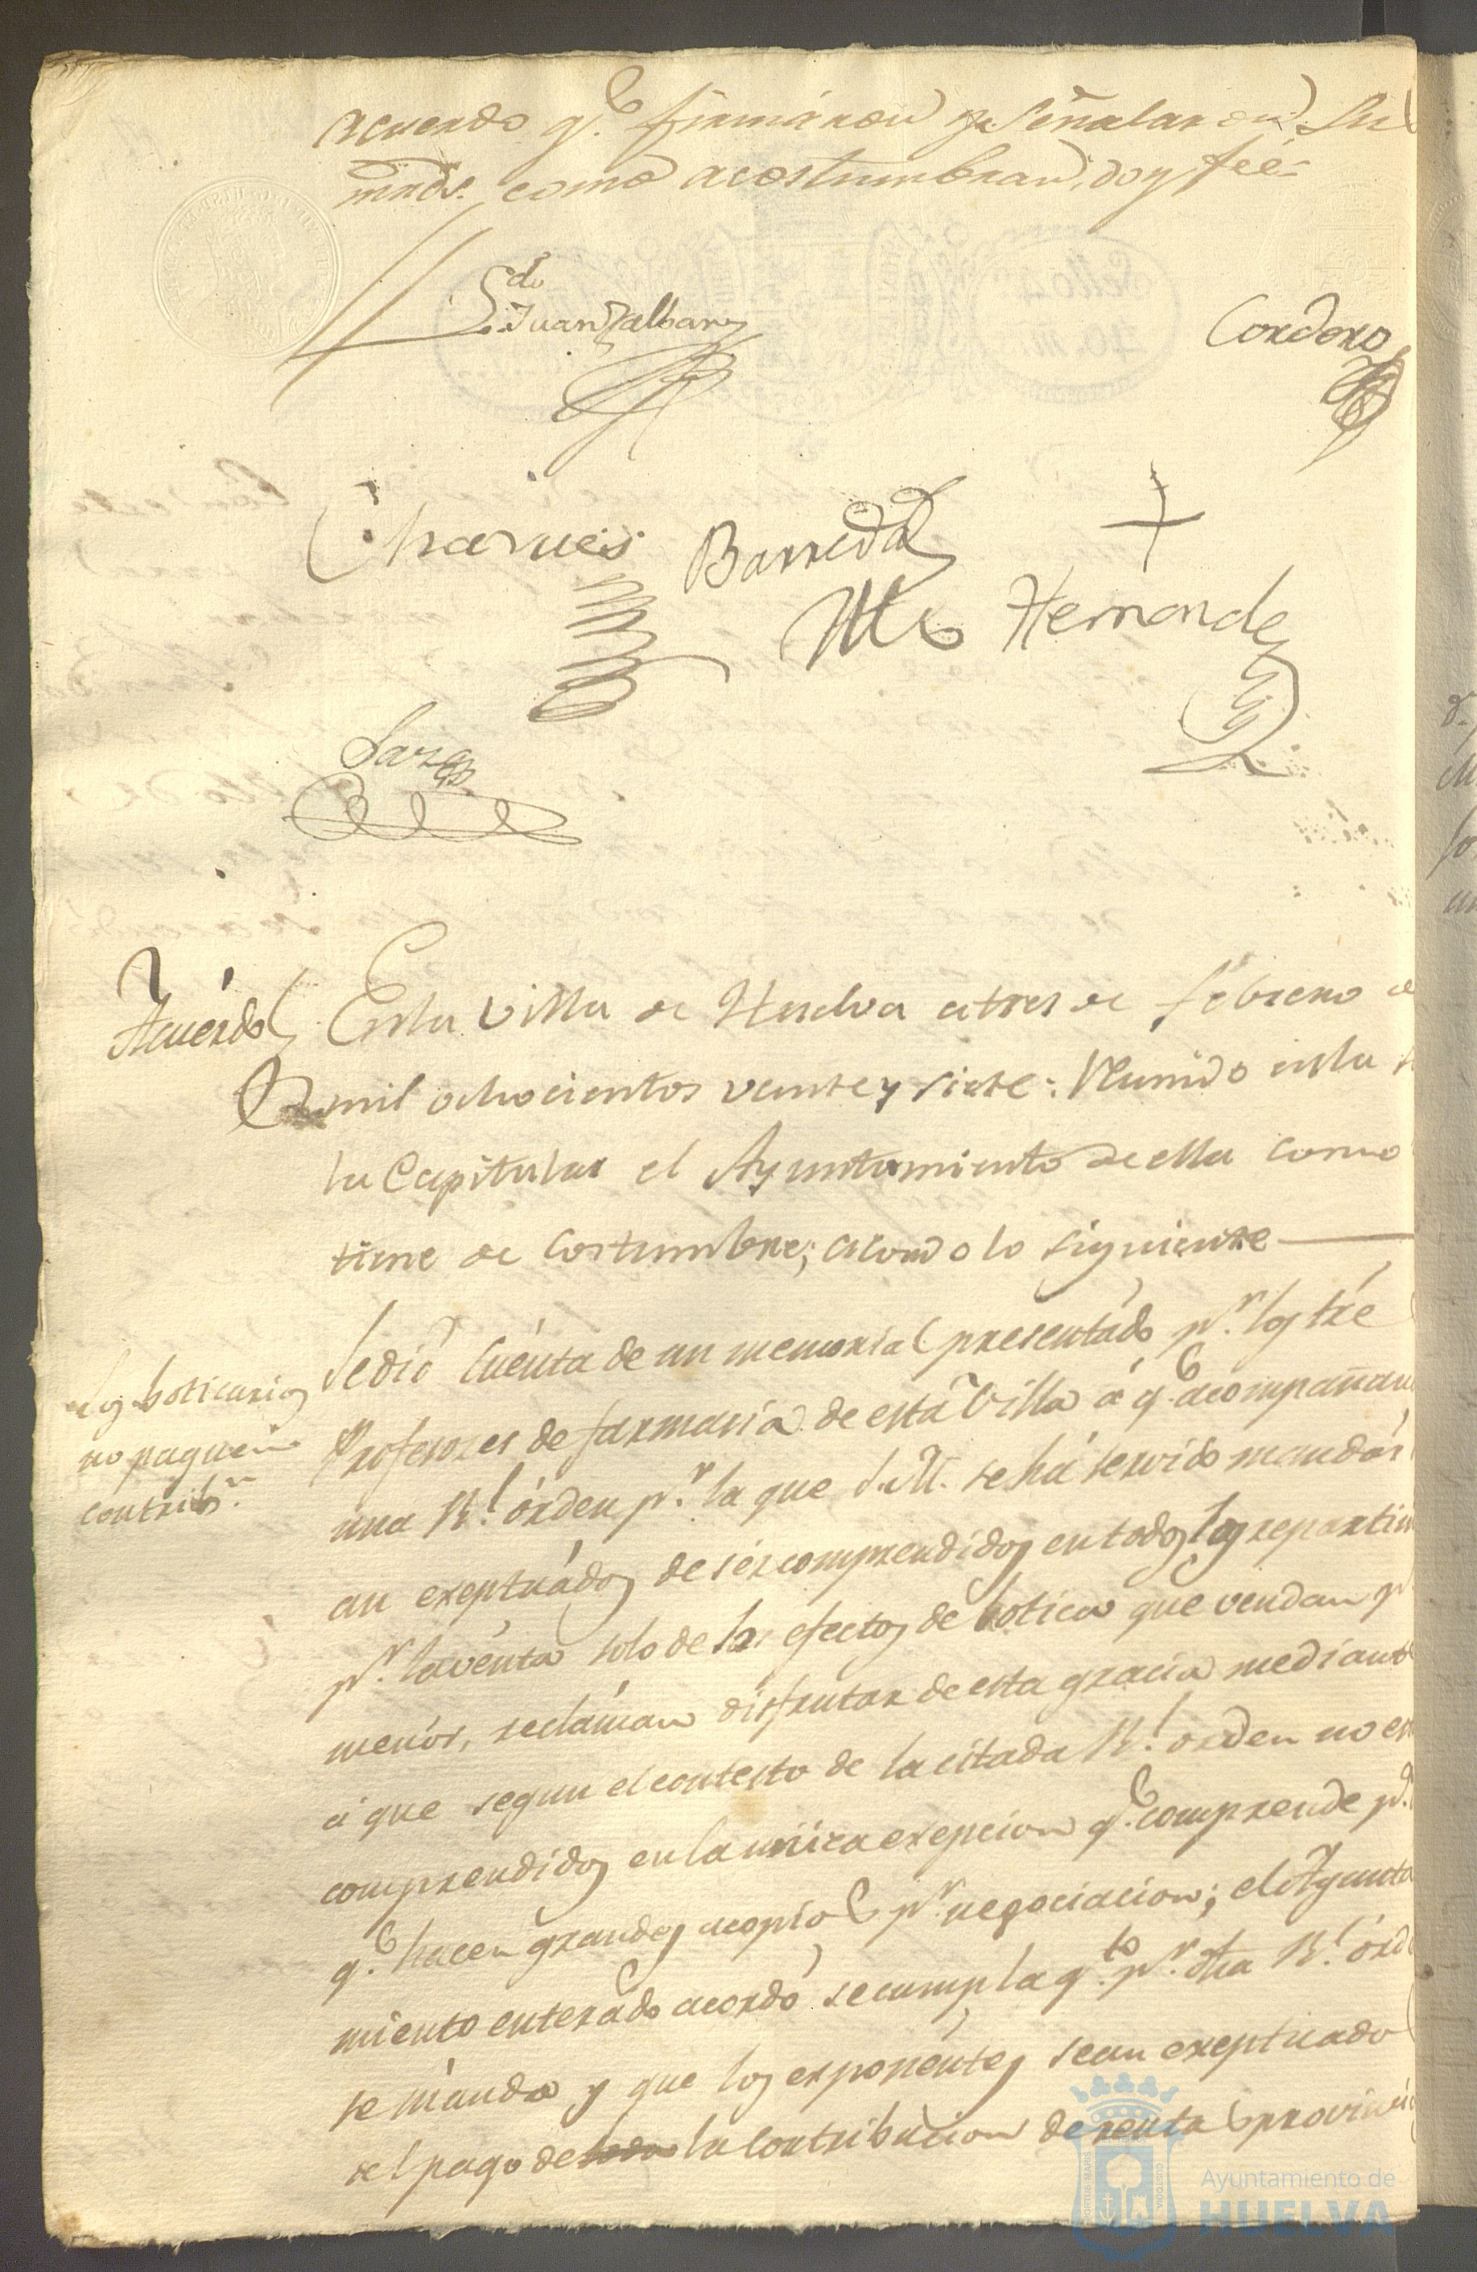 acuerdo q.e firmáron y señalaron su
mrds. como acostumbran, doy fée
Ldo
Juan
Cordero
Charues
Barreda
Hernandez
Acuérdo
En la Villa de Huelva a tres de febrero de
mil ochocientos veinte y siete: Reunido en la
la Capitular el Ayuntamiento de ella como
tiene de costumbre; acordo lo siguiente
Los boticarios
no paguen
contrib.n
Se dió cuénta de un memorial presentádo p.r los tre
Profesores de farmacia de está Villa á q.e acompañan
una R.l órden p.r la que S.M. se há servido mandár
an exeptuádos de sér comprendidos en todos los repartim
p.r la vénta solo de los efectos de botica que vendan p.r
menór, reclaman disfrutar de esta gracia mediant
á que segun el contesto de la citada R.l orden no es
comprendidos en la unica exepcion q.e comprende p.a
q.e hacen grandes acopios p.r negociacion; el Ayunta
miento enterado acordó se cumpla q.to p.r dha R.l órd
se mánda y que los exponéntes sean exeptuado
del pago de la contribucion de rentas provinci
Ayuntamiento de
HUELVA